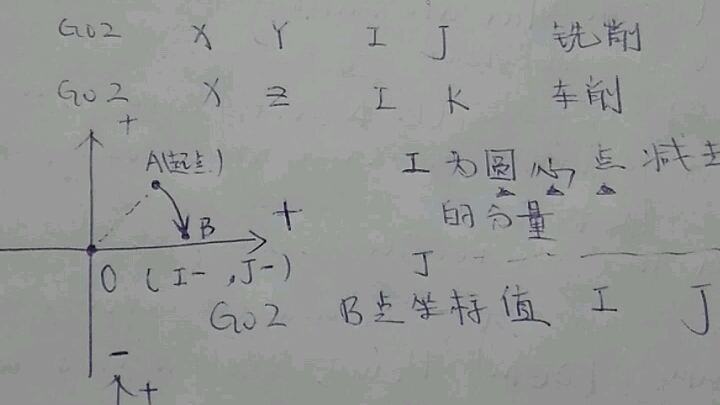 G02 X Y I J 铣削
G02 X Z I K 车削
+
A(起点)
I 为圆心点减去
的分量
B
+
O (I-, J-)
J
G02 B点坐标值 I J
-
+